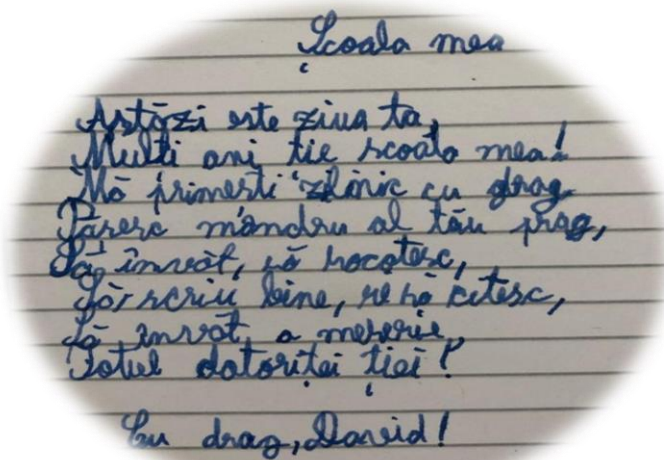 Școala mea
Astăzi este ziua ta,
Multi ani tie scoala mea!
Mă primesti zilnic cu drag
Păsesc mândru al tău prag,
Să învăt, să socotesc,
Să scriu bine, se să citesc,
Să învăt a meserie,
Totul datoriței ției!
Cu drag, David!